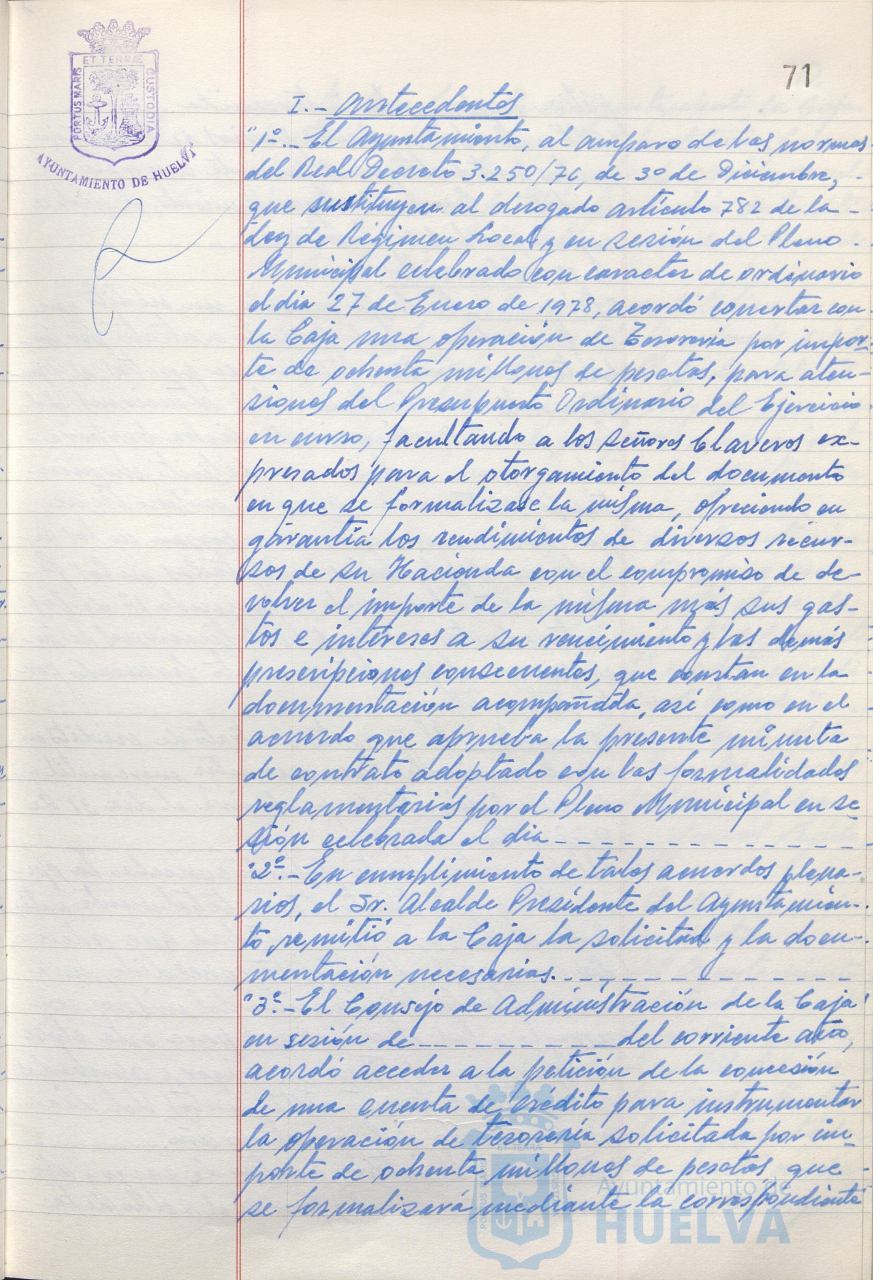 71
ET TERRÆ
PORTUS MARIS
CUSTODIA
AYUNTAMIENTO DE HUELVA
I.- Antecedentes
"1º.- El Ayuntamiento, al amparo de las normas
del Real Decreto 3.250/76, de 30 de Diciembre, -
que sustituyen al derogado artículo 782 de la -
Ley de Régimen Local y en sesión del Pleno -
Municipal celebrado con caracter de ordinario
el dia 27 de Enero de 1978, acordó concertar con
la Caja una operación de Tesorería por impor-
te de ochenta millones de pesetas, para aten-
siones del Presupuesto Ordinario del Ejercicio
en curso, facultando a los señores Claveros ex-
presados para el otorgamiento del documento
en que se formalizase la misma, ofreciendo en
garantía los rendimientos de diversos recur-
sos de su Hacienda con el compromiso de de-
volver el importe de la misma más sus gas-
tos e intereses a su vencimiento y las demás
prescripciones consecuentes, que constan en la
documentación acompañada, así como en el
acuerdo que aprueba la presente minuta
de contrato adoptado con las formalidades
reglamentarias por el Pleno Municipal en se
sión celebrada el dia - - - - - - - - - - - - -
"2º.- En cumplimiento de tales acuerdos plena-
rios, el Sr. Alcalde Presidente del Ayuntamien-
to, remitió a la Caja la solicitud y la docu-
mentación necesarias. - - - - - - - - - - - -
"3º.- El Consejo de Administración de la Caja
en sesión de - - - - - - - - - - del corriente año,
acordó acceder a la petición de la concesión
de una cuenta de crédito para instrumentar
la operación de tesorería solicitada por im-
porte de ochenta millones de pesetas que -
se formalizará mediante la correspondiente
Ayuntamiento de
HUELVA